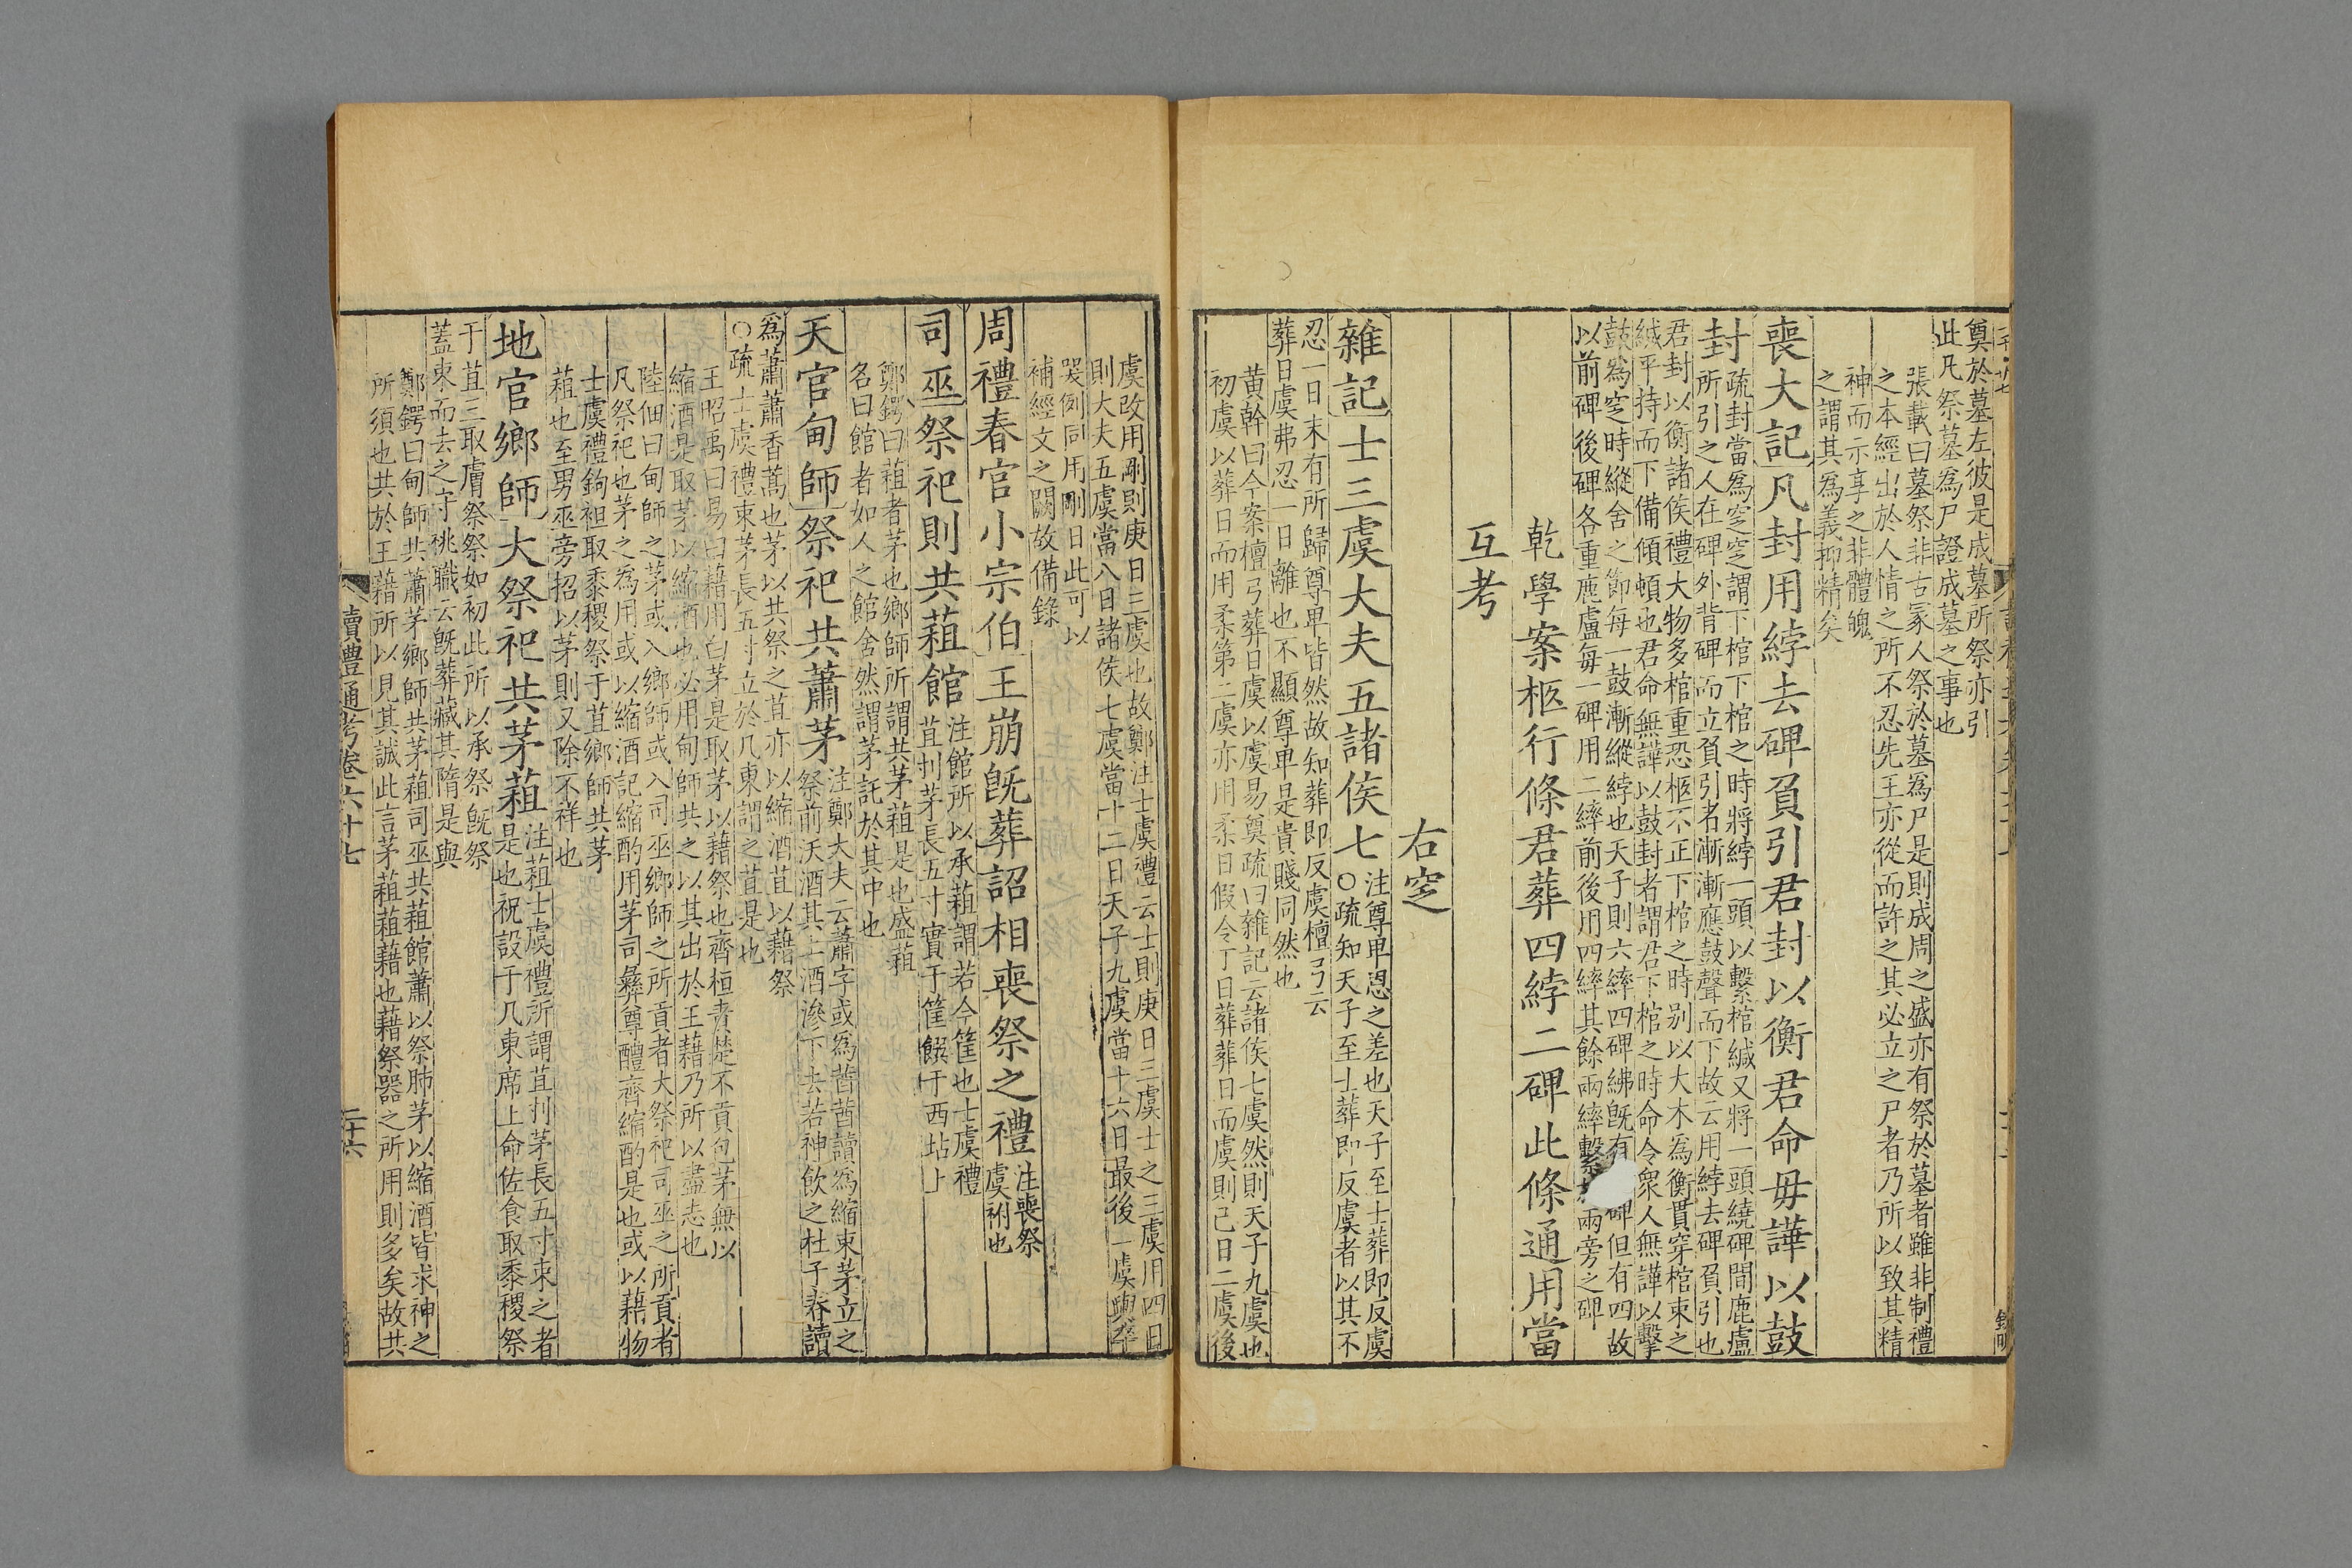 奠於墓左彼是成墓所祭亦引
此凡祭墓爲尸證成墓之事也
張載曰墓祭非古冢人祭於墓爲尸是則成周之盛亦有祭於墓者雖非制禮
之本經出於人情之所不忍先王亦從而許之其必立之尸者乃所以致其精
神而示享之非體魄
之謂其爲義抑精矣
喪大記凡封用綍去碑負引君封以衡君命毋譁以鼓
封疏封當爲窆窆謂下棺下棺之時將綍一頭以繫棺緘又將一頭繞碑間鹿盧
所引之人在碑外背碑而立負引者漸漸應鼓聲而下故云用綍去碑負引也
君封以衡諸侯禮大物多棺重恐柩不正下棺之時別以大木爲衡貫穿棺束之
緘平持而下備傾頓也君命無譁以鼓封者謂君下棺之時命令衆人無譁以擊
鼓爲窆時縱舍之節每一鼓漸縱綍也天子則六繂四碑紼旣有碑但有四故
以前碑後碑各重鹿盧每一碑用二繂前後用四繂其餘兩繂繫兩旁之碑
乾學案柩行條君葬四綍二碑此條通用當
互考
右窆
雜記士三虞大夫五諸侯七注尊卑恩之差也天子至士葬即反虞
○疏知天子至士葬即反虞者以其不
忍一日末有所歸尊卑皆然故知葬即反虞檀弓云
葬日虞弗忍一日離也不顯尊卑是貴賤同然也
黃幹曰今案檀弓葬日虞以虞易奠疏曰雜記云諸侯七虞然則天子九虞也
初虞以葬日而用柔第二虞亦用柔日假令丁日葬葬日而虞則己日二虞後
虞改用剛則庚日三虞也故鄭注士虞禮云士則庚日三虞士之三虞用四日
則大夫五虞當八日諸侯七虞當十二日天子九虞當十六日最後一虞與卒
哭例同用剛日此可以
補經文之闕故備錄
周禮春官小宗伯王崩旣葬詔相喪祭之禮注喪祭
虞祔也
司巫祭祀則共蒩館注館所以承蒩謂若今筐也士虞禮
苴刌茅長五寸實于筐饌于西坫上
鄭鍔曰蒩者茅也鄉師所謂共茅蒩是也盛蒩
名曰館者如人之館舍然謂茅託於其中也
天官甸師祭祀共蕭茅注鄭大夫云蕭字或爲莤莤讀爲縮束茅立之
祭前沃酒其上酒滲下去若神飲之杜子春讀
爲蕭蕭香蒿也茅以共祭之苴亦以縮酒苴以藉祭
○疏士虞禮束茅長五寸立於几東謂之苴是也
王昭禹曰易曰藉用白茅是取茅以藉祭也齊桓責楚不貢包茅無以
縮酒是取茅以縮酒也必用甸師共之以其出於王藉乃所以盡志也
陸佃曰甸師之茅或入鄉師或入司巫鄉師之所貢者大祭祀司巫之所貢者
凡祭祀也茅之爲用或以縮酒記縮酌用茅司彝尊醴齊縮酌是也或以藉物
士虞禮鉤袒取黍稷祭于苴鄉師共茅
蒩也至男巫旁招以茅則又除不祥也
地官鄉師大祭祀共茅蒩注蒩士虞禮所謂苴刌茅長五寸束之者
是也祝設于几東席上命佐食取黍稷祭
于苴三取膚祭祭如初此所以承祭旣祭
蓋束而去之守祧職云旣葬藏其隋是與
鄭鍔曰甸師共蕭茅鄉師共茅蒩司巫共蒩館蕭以祭肺茅以縮酒皆求神之
所須也共於王藉所以見其誠此言茅蒩蒩藉也藉祭器之所用則多矣故共
讀禮通考卷六十七
二十六